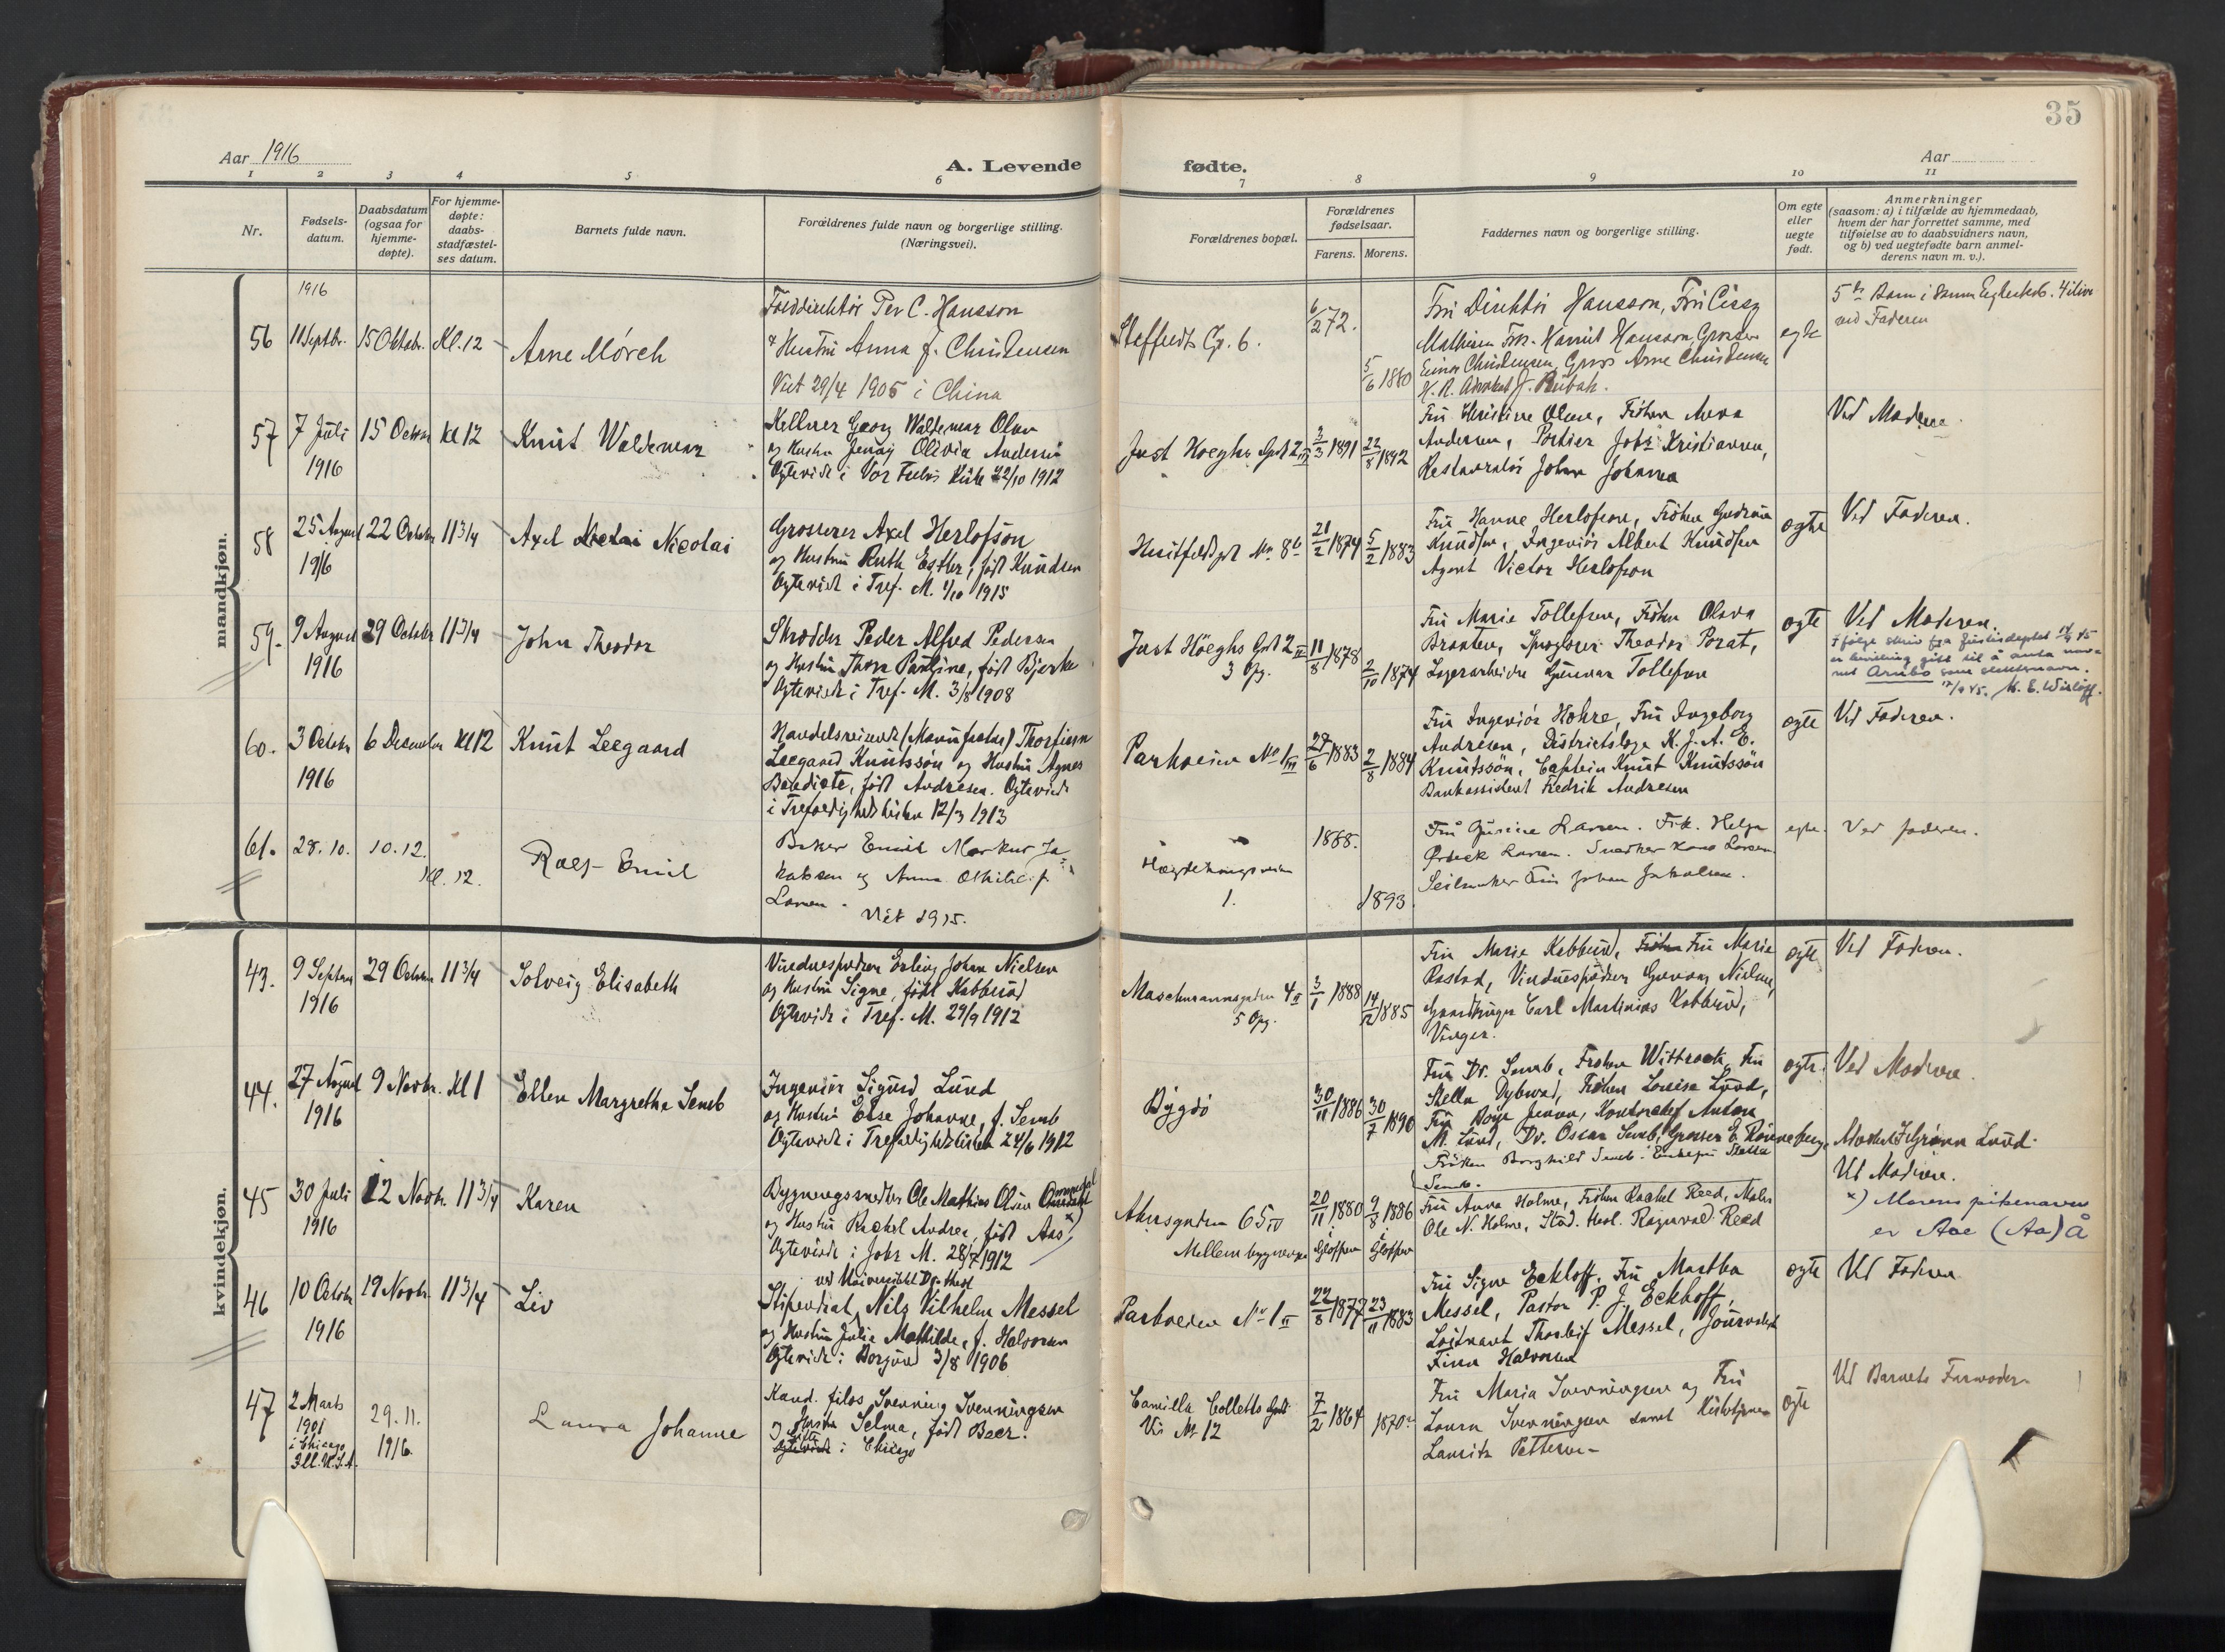 35
Aar 1916
A. Levende
fødte.
Aar
1 2 3 4 5 6 7 8 9 10 11
Nr.
Fødsels-
datum.
Daabsdatum
(ogsaa for
hjemme-
døpte).
For hjemme-
døpte:
daabs-
stadfæstel-
ses datum.
Barnets fulde navn.
Forældrenes fulde navn og borgerlige stilling.
(Næringsvei).
Forældrenes bopæl.
Forældrenes
fødselsaar.
Farens. Morens.
Faddernes navn og borgerlige stilling.
Om egte
eller
uegte
født.
Anmerkninger
(saasom: a) i tilfælde av hjemmedaab,
hvem der har forrettet samme, med
tilføielse av to daabsvidners navn,
og b) ved uegtefødte barn anmel-
derens navn m. v.).
mandkjøn.
1916
56 11 Septbr. 15 Oktobr. Kl. 12
Arne Mörch
Per C. Hansson
& Hustru Anna f. Christensen
Viet 29/4 1905 i China
Gr. 6.
6/2 72.
5/6 1880
Fru Direktör Hansson, Fru Cissy
Mathiesen Hansson
Einar Christensen, Gross Arne Christensen
H. R. Advokat J.
egte
5te Barn i samme Egteskab. 4 ilive
ved Faderen
57 7 Juli 1916 15 Octobr Kl 12
Knut Waldemar
Kellner Georg Waldemar Olsen
og Hustru Jenny Olivia Andersen
Ogteviet i Vor Frelsers Kirke 22/10 1912
Just Hoeghs Gt 2 III
3/3 1891
22/8 1892
Fru Kristine Olsen, Fröken Anna
Andersen, Portier Johs Kristiansen,
Restauratör Johan
Ved Moderen.
58 25 August 1916 22 October 11 3/4
Axel Nicolai
Grosserer Axel Herlofson
og Hustru Ruth Esther, født Knudsen
Ogteviet i Tref. M. 1/10 1915
Huitfeldtsgt No. 8b
21/2 1874
5/2 1883
Fru Hanne Herlofson, Fröken Gudrun
Knudsen, Ingeniör Albert Knudsen
Agent Victor Herlofson
ogte
Ved Faderen.
59. 9 August 1916 29 October 11 3/4
John Theodor
Skrædder Peder Alfred Pedersen
og Hustru Thora Pauline, født Bjerke
Ogteviet i Tref. M. 3/8 1908
Just Höeghs Gt 2 II
3 Opg.
11/8 1878
2/10 1874
Fru Marie Tollefsen, Fröken Olava
Braaten, Theodor Porat,
Lagerarbeider Gunnar Tollefsen
ogte
Ved Moderen.
Ifølge skriv fra Justisdeptet 45
er bevilling gitt til å anta nav-
net Arnbo som slektsnavn.
45. K. E. Wisløff.
60. 3 October 1916 6 December Kl 12
Knut Leegaard
Handelsreisende (Manufactur) Thorfinn
Leegaard Knutssön og Hustru Agnes
Benedicte, født Andresen. Ogteviet
i Trefoldighedskirken 12/3 1913
Parkveien No 1 III
27/6 1883
2/8 1884
Fru Ingeniör Hohre, Fru Ingeborg
Andresen, Districtslæge K. J. A. E.
Knutssön, Captein Knut Knutssön
Bankassistent Fredrik Andresen
ogte
Ved Faderen.
61. 28. 10. 10. 12. Kl. 12.
Rolf Emil
Baker Emil Markus Ja-
kobsen og Anna Othilie f.
Larsen.
Viet 1915.
1.
1888.
1893.
Fru Gusine Larsen. Frk. Helga
Larsen. Snedker Larsen.
Seilmaker Johan Jakobsen.
egte.
Ved faderen.
kvindekjøn.
43. 9 Septem 1916 29 October 11 3/4
Solveig Elisabeth
Vinduespudser Erling Johan Nielsen
og Hustru Signe, født Kabberud
Ogteviet i Tref. M. 29/9 1912
Maschmannsgaten 4 II
5 Opg.
3/1 1888
14/12 1885
Fru Marie Kabberud, Fru Marie
Rastad, Vinduespudser Nielsen,
Gaardbruger Carl Martinius Kabberud,
Vinger.
ogte
Ved Faderen.
44. 27 August 1916 9 Novbr. Kl 1
Ellen Margrethe Semb
Ingeniör Sigurd Lund
og Hustru Else Johanne, f. Semb
Ogteviet i Trefoldighedskirken 24/6 1912
Bygdö
30/11 1886
30/7 1890
Fru Dr. Semb, Fröken Wittrock, Fru
Stella Dybwad, Fröken Louise Lund,
Fru Jensen, Kontorchef Anton
M. Lund, Dr. Oscar Semb, Grosser E. Rönneberg,
Fröken Borghild Semb. Enkefru Stella
Semb.
ogte.
Ved Moderen.
45 30 Juli 1916 12 Novbr. 11 3/4
Karen
Bygningssnedker Ole Mathias Olsen
og Hustru Rachel Andrea, født Aas x)
Ogteviet i Johs M. 28/7 1912
Akersgaten 65 IV
Mellembygningen
20/11 1880
9/8 1886
Fru Anna Holme, Fröken Rachel Reed, Maler
Ole N. Holme, Stud. theol. Ragnvald Reed
Ved Moderen.
x) Morens pikenavn
er Aae (Aa) Å
46 10 October 1916 19 Novbr. 11 3/4
Liv
ved Universitetet Dr. theol
Stipendiat, Nils Vilhelm Messel
og Hustru Julie Mathilde, f. Halvorsen
Ogteviet i Borgund 3/8 1906
Parkveien No 1 II
22/8 1877
23/11 1883
Fru Signe Eckhoff, Fru Martha
Messel, Pastor P. J. Eckhoff,
Löitnant Thorleif Messel, Journalist
Finn Halvorsen
ogte
Ved Faderen.
47 2 Marts 1901
i Chicago
Ill. U.S.A.
29. 11.
1916.
Laura Johanne
Kand. filos Svenning Svenningsen
og Hustru Selma, født Beer.
Ogteviet i Chicago
Camilla Colletts
Vei No 12
7/2 1864
1870
Fru Maria Svenningsen og Fru
Laura Svenningsen samt Kirketjener
Lauritz Pettersen
ogte
Ved Barnets Farmoder